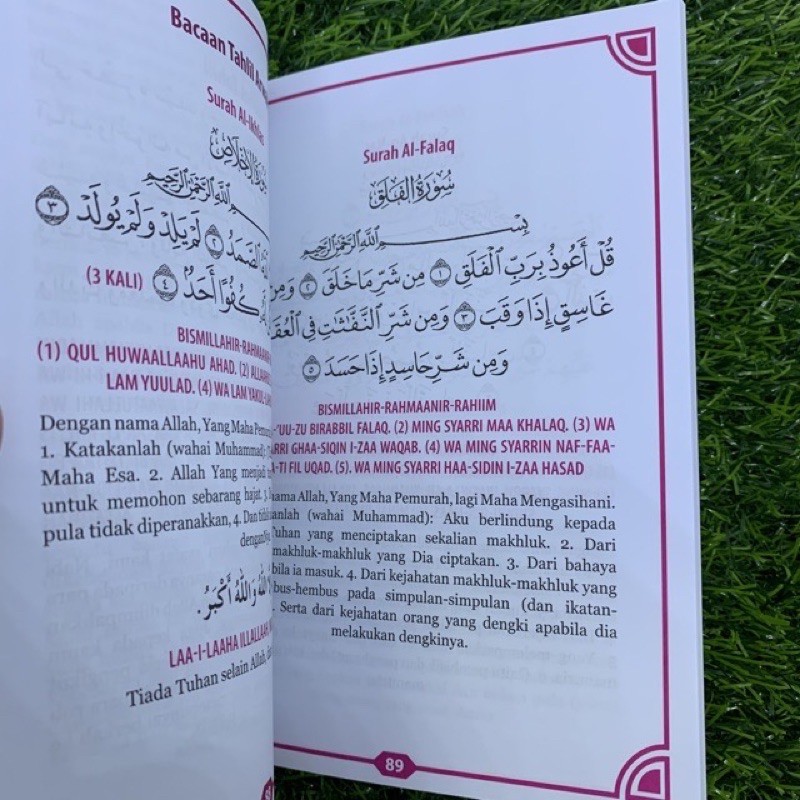 Bacaan Tahlil
Surah Al-Ikhlas
سُورَةُ الإِخْلَاصِ
بِسْمِ اللَّهِ الرَّحْمَٰنِ الرَّحِيمِ
لَمْ يَلِدْ وَلَمْ يُولَدْ ٣
الصَّمَدُ ٢
كُفُوًا أَحَدٌ ٤ (3 KALI)
BISMILLAHIR-RAHMAANIR-
(1) QUL HUWAALLAAHU AHAD. (2)
LAM YUULAD. (4) WA LAM
Dengan nama Allah, Yang Maha
1. Katakanlah (wahai Muhammad):
Maha Esa. 2. Allah Yang menjadi
untuk memohon sebarang hajat.
pula tidak diperanakkan, 4. Dan
وَاللَّهُ أَكْبَرُ.
LAA-I-LAAHA ILLALLAAH
Tiada Tuhan selain Allah,
Surah Al-Falaq
سُورَةُ الْفَلَقِ
بِسْمِ اللَّهِ الرَّحْمَٰنِ الرَّحِيمِ
قُلْ أَعُوذُ بِرَبِّ الْفَلَقِ ١ مِن شَرِّ مَا خَلَقَ ٢ وَمِن
غَاسِقٍ إِذَا وَقَبَ ٣ وَمِن شَرِّ النَّفَّٰثَٰتِ فِي
وَمِن شَرِّ حَاسِدٍ إِذَا حَسَدَ ٥
BISMILLAHIR-RAHMAANIR-RAHIIM
-'UU-ZU BIRABBIL FALAQ. (2) MING SYARRI MAA KHALAQ. (3) WA
GHAA-SIQIN I-ZAA WAQAB. (4) WA MING SYARRIN NAF-FAA-
-TI FIL UQAD. (5). WA MING SYARRI HAA-SIDIN I-ZAA HASAD
nama Allah, Yang Maha Pemurah, lagi Maha Mengasihani.
(wahai Muhammad): Aku berlindung kepada
Tuhan yang menciptakan sekalian makhluk. 2. Dari
makhluk-makhluk yang Dia ciptakan. 3. Dari bahaya
ia masuk. 4. Dari kejahatan makhluk-makhluk yang
-hembus pada simpulan-simpulan (dan ikatan-
. Serta dari kejahatan orang yang dengki apabila dia
melakukan dengkinya.
89